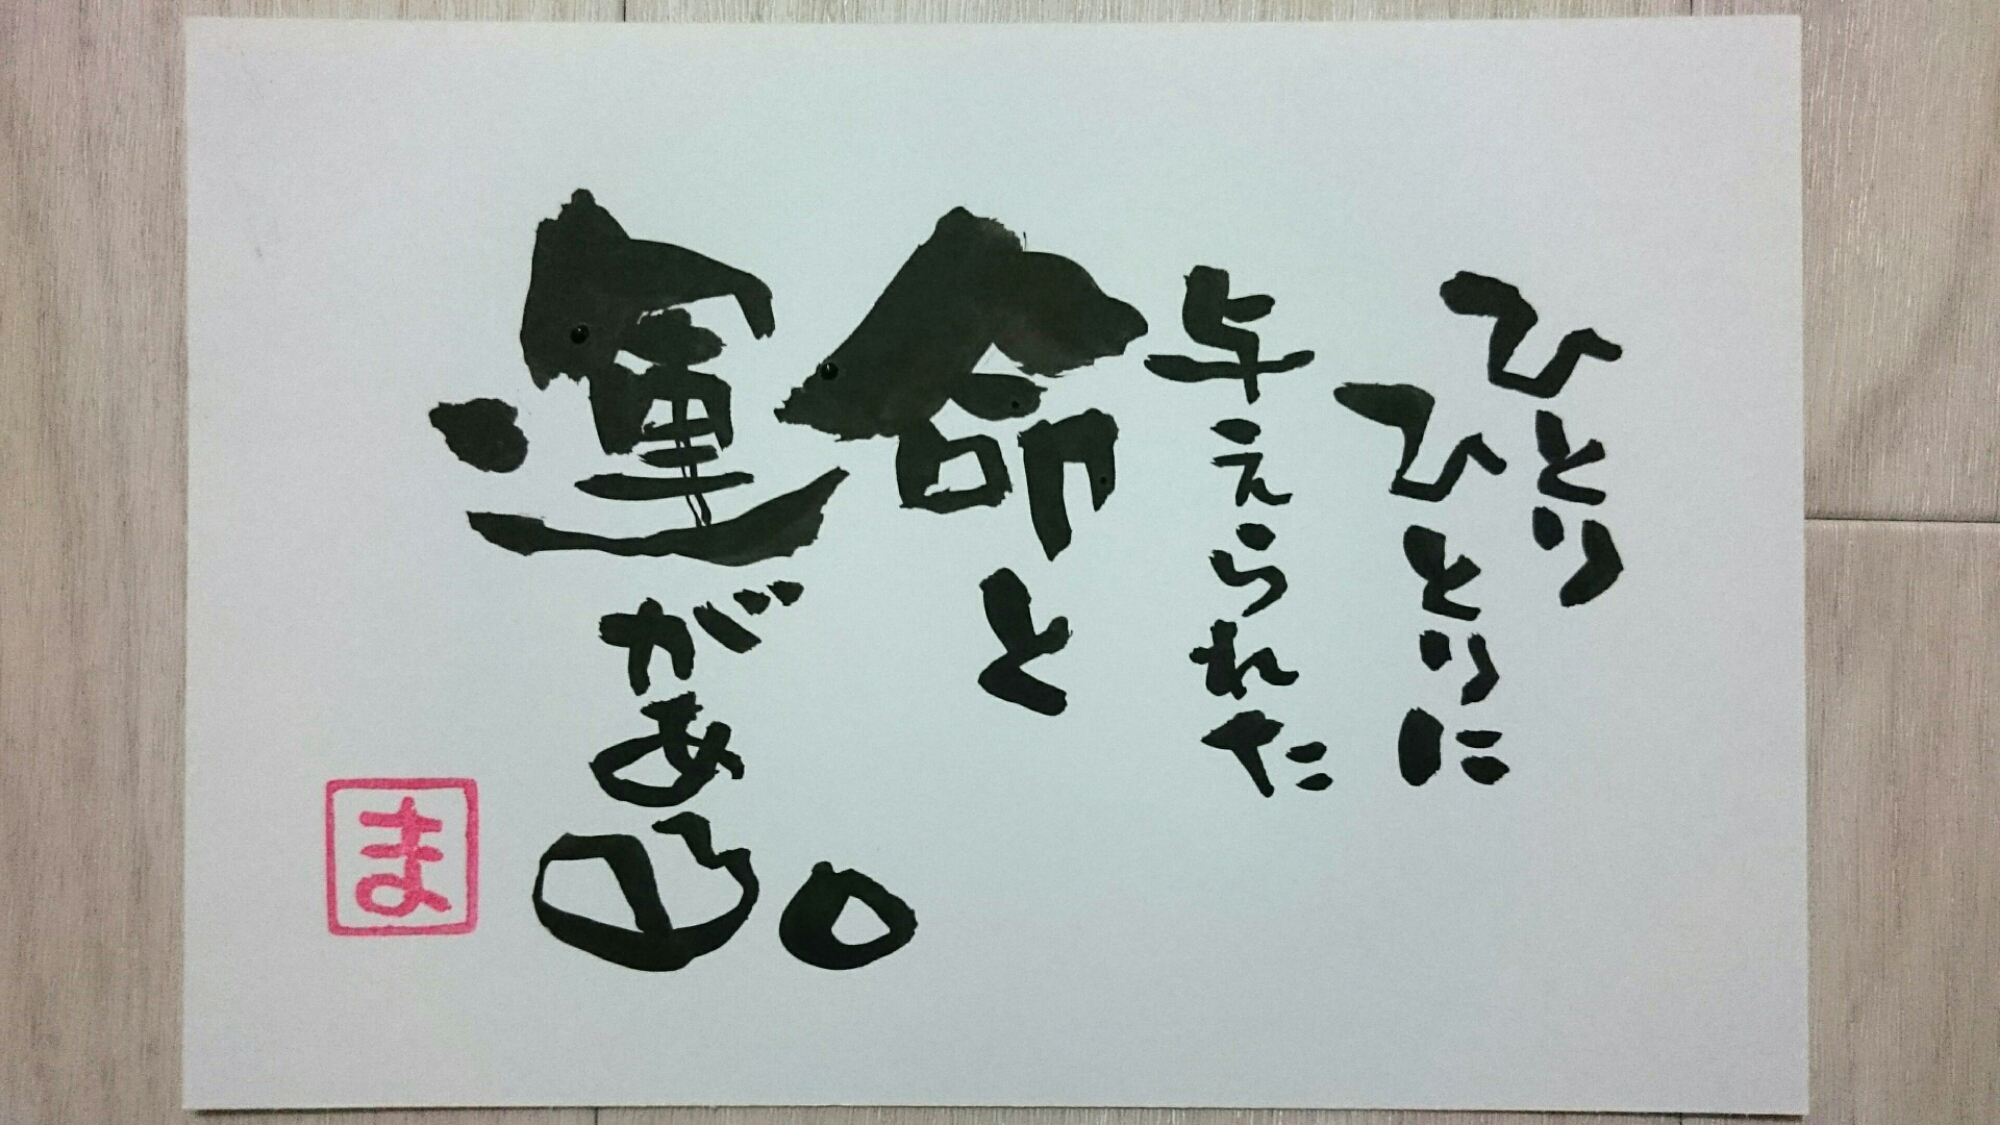 ひとり
ひとりに
与えられた
命と
運がある。
ま